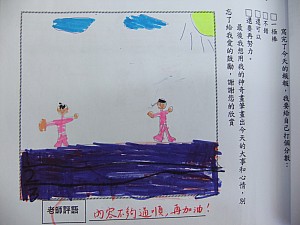 寫完了今天的繪報，我要給自己打個分數：
□一極棒
□不錯
□還可以
□還要再努力。
最後我想用我的神奇畫筆畫出今天的大事和心情，別
忘了給我愛的鼓勵，謝謝您的欣賞
老師評語
內容不夠通順，再加油！